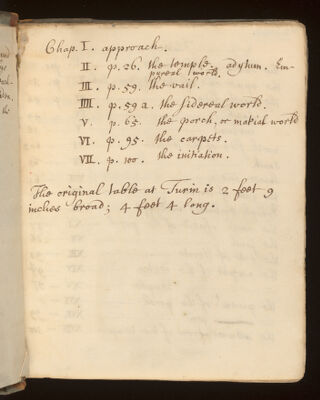 Chap. I. approach.
II. p. 26. the temple. adytum. Em-
pyreal world.
III. p. 59. the vail.
IIII. p. 59 a. the sidereal world.
V. p. 65. the porch, or matial world
VI. p. 95. the carpets.
VII. p. 100. the initiation.
The original table at Turin is 2 feet 9
inches broad; 4 feet 4 long.